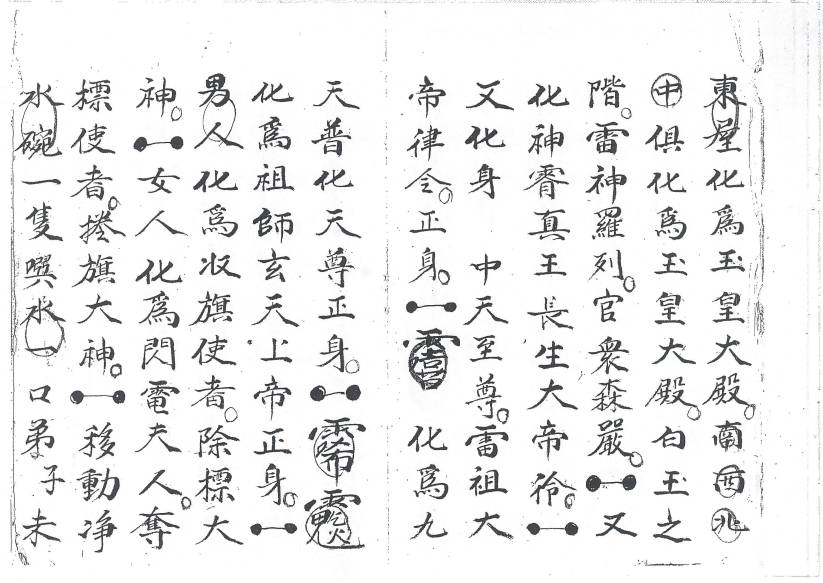 東屋化爲玉皇大殿。南西北
中俱化爲玉皇大殿。白玉之
階。雷神羅列。官衆森嚴。又
化神真王長生大帝
又化身 中天至尊。雷祖大
帝律令。正身。 化爲九
天普化天尊正身。
化爲祖師玄天上帝正身。
男人化爲收旗使者。除標大
神。女人化爲閃電夫人。奪
標使者。捲旗大神。移動净
水碗一隻噀水一口弟子未